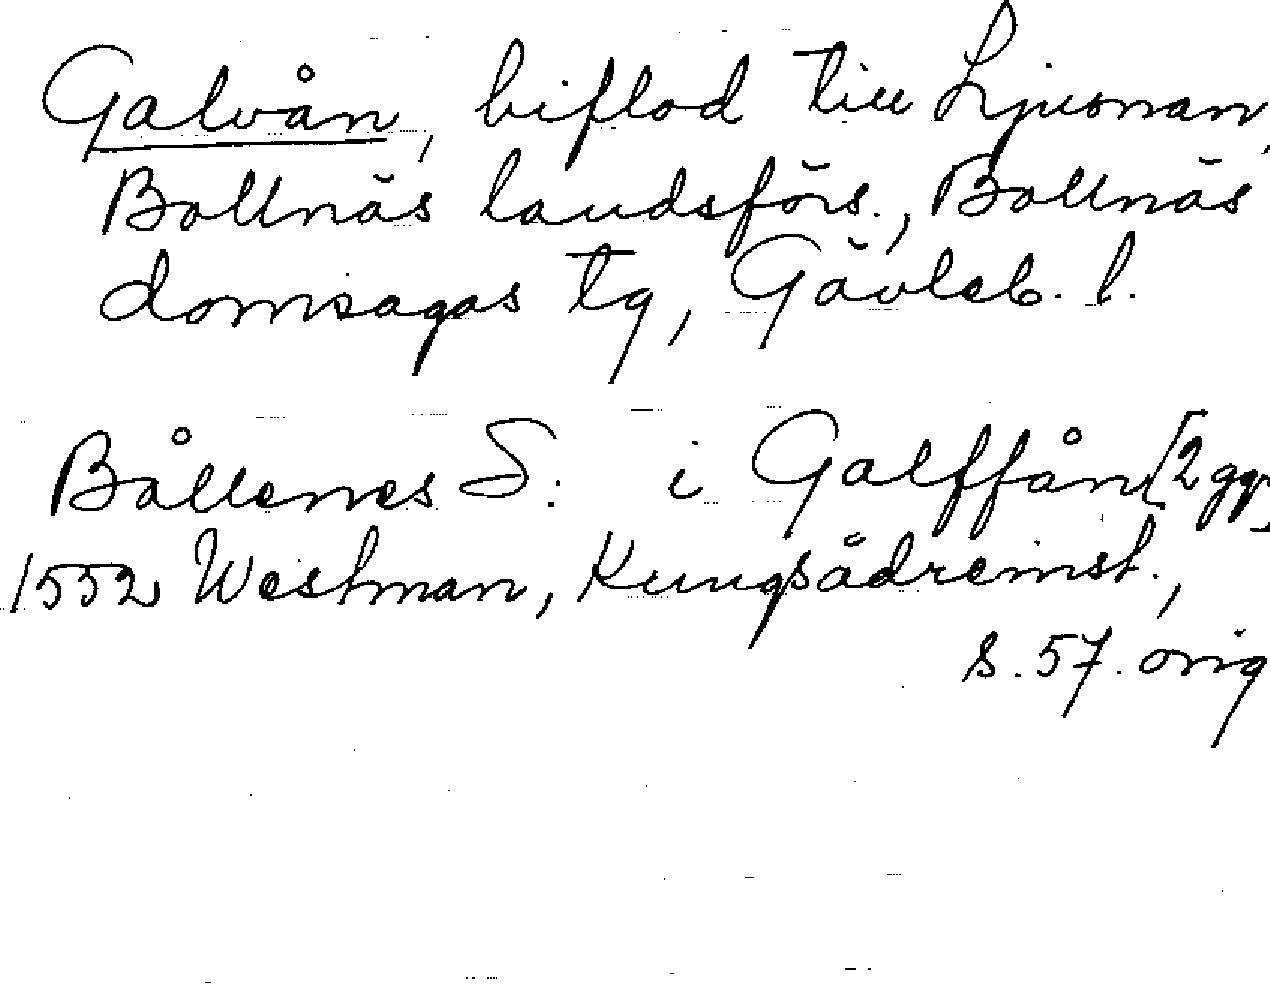 Galvån, biflod till Ljusnan,
Bollnäs landsförs., Bollnäs
domsagas tg, Gävleb. l.
Bållenes S: i Galffån [2 ggr]
1552 Westman, Kungsådreinst.,
s. 57. orig